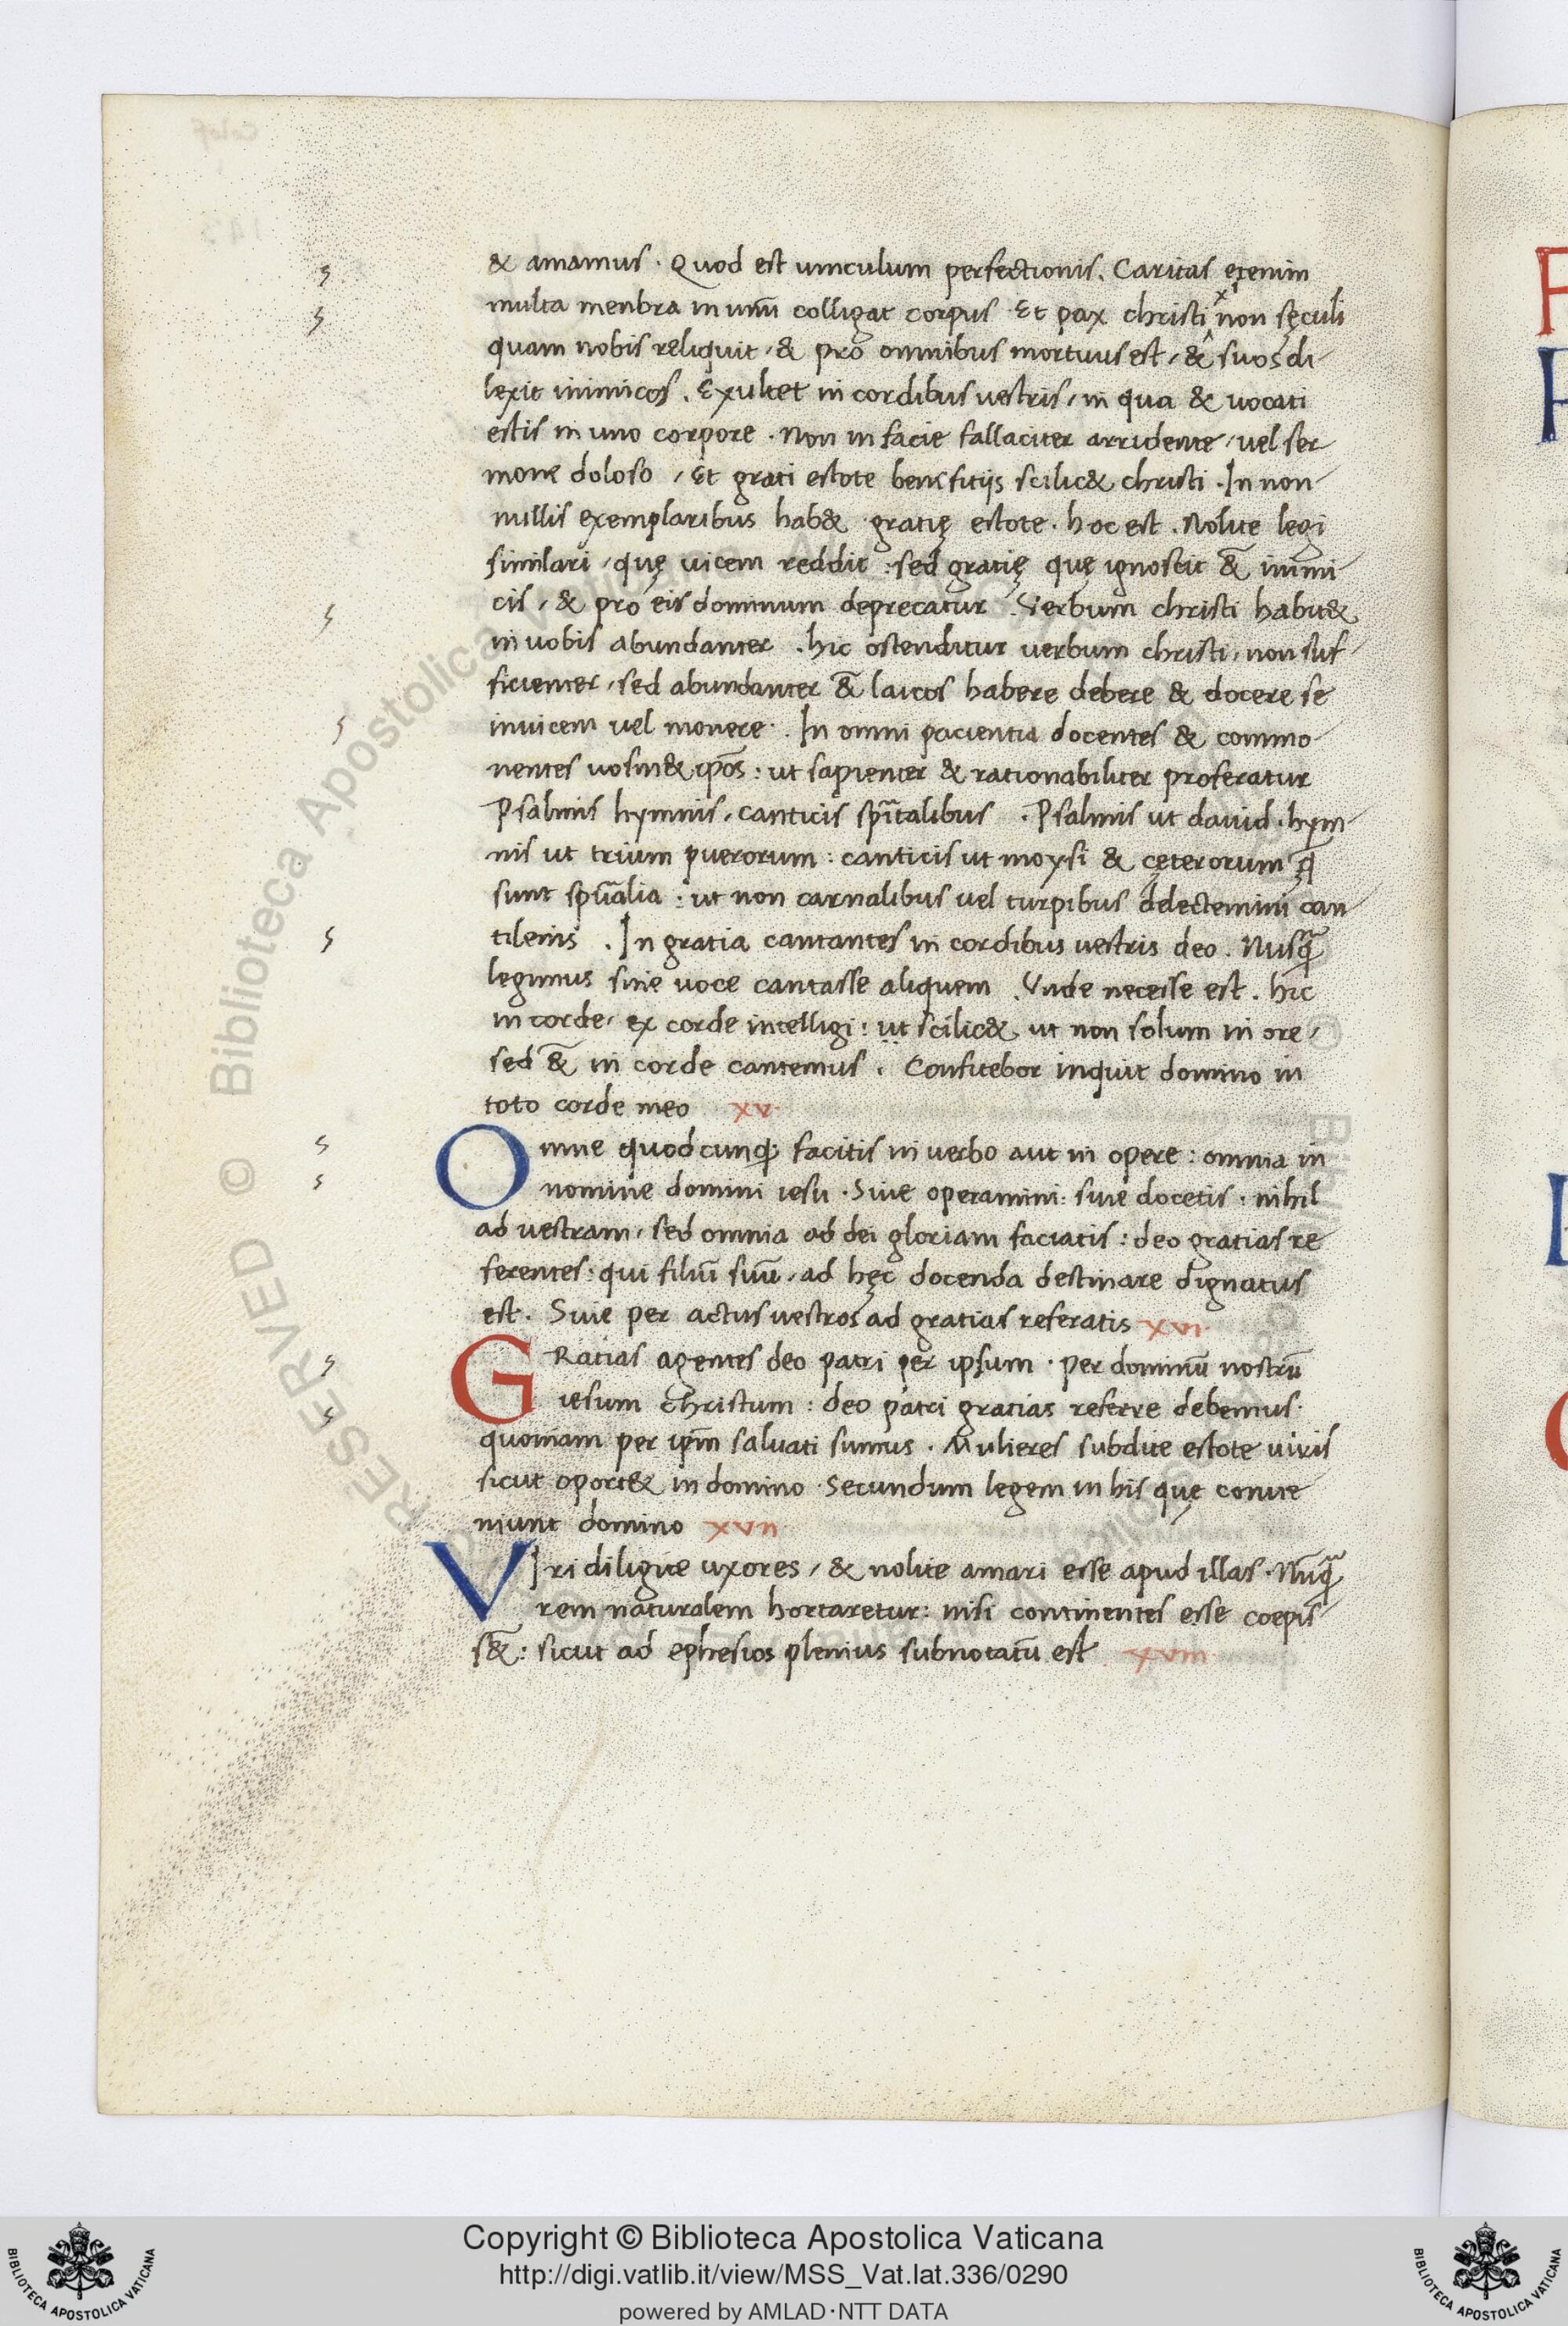 & amamus · Quod est uinculum perfectionis. Caritas etenim
multa menbra in unū colligat corpus · Et pax christi non sęculi
quam nobis reliquit, & pro omnibus mortuus est, & suos di-
lexit inimicos. Exultet in cordibus uestris, in qua & uocati
estis in uno corpore · Non in facie fallaciter arridente, uel ser
mone doloso, Et grati estote benefitijs scilic& christi · In non-
nullis exemplaribus hab& gratię estote · hoc est. Nolite legi
similari, quę uicem reddit : sed gratię quę ignoscit &̄ inimi
cis, & pro eis dominum deprecatur. Verbum christi habit&
in uobis abundanter. hic ostenditur uerbum christi, non suf-
ficienter, sed abundanter &̄ laicos habere debere & docere se
inuicem uel monere. In omni pacientia docentes & commo-
nentes uosm& ip̄os : ut sapienter & rationabiliter proferatur
Psalmis hymnis, canticis spītalibus · Psalmis ut dauid · hym-
nis ut trium puerorum : canticis ut moysi & ceterorum q̄
sunt spūalia : ut non carnalibus uel turpibus delectemini can
tilenis. In gratia cantantes in cordibus uestris deo. Nusq̄
legimus sine uoce cantasse aliquem. Vnde necesse est. hic
in corde, ex corde intelligi : ut scilic& ut non solum in ore,
sed &̄ in corde cantemus. Confitebor inquit domino in
toto corde meo xv·
Omne quodcunq; facitis in uerbo aut in opere : omnia in
nomine domini iesu · Siue operamini : siue docetis · nihil
ad uestram, sed omnia ad dei gloriam faciatis : deo gratias re
ferentes : qui filiū suū, ad hęc docenda destinare dignatus
est. Siue per actus uestros ad gratias referatis xvi·
GRatias agentes deo patri per ipsum · per dominū nostrū
iesum christum : deo patri gratias referre debemus·
quoniam per ip̄m saluati sumus. Mulieres subdite estote uiris
sicut oport& in domino · Secundum legem in his quę conue
niunt domino xvii·
VIri diligite uxores, & nolite amari esse apud illas · Nūq̄
rem naturalem hortaretur : nisi continentes esse coepis-
s&̄ : sicut ad ephesios plenius subnotatū est xviii·
Copyright © Biblioteca Apostolica Vaticana
http://digi.vatlib.it/view/MSS_Vat.lat.336/0290
powered by AMLAD·NTT DATA
BIBLIOTECA APOSTOLICA VATICANA
BIBLIOTECA APOSTOLICA VATICANA